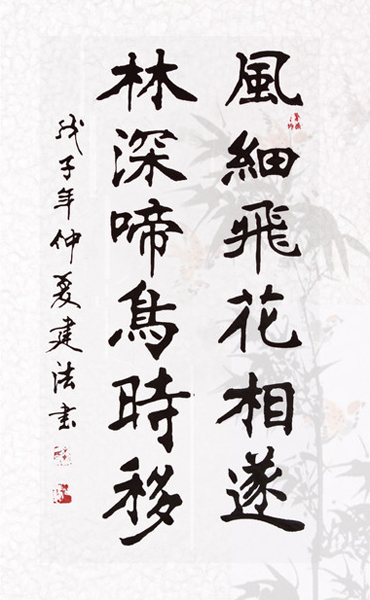 風細飛花相遂
林深啼鳥時移
戊子年仲夏建法書